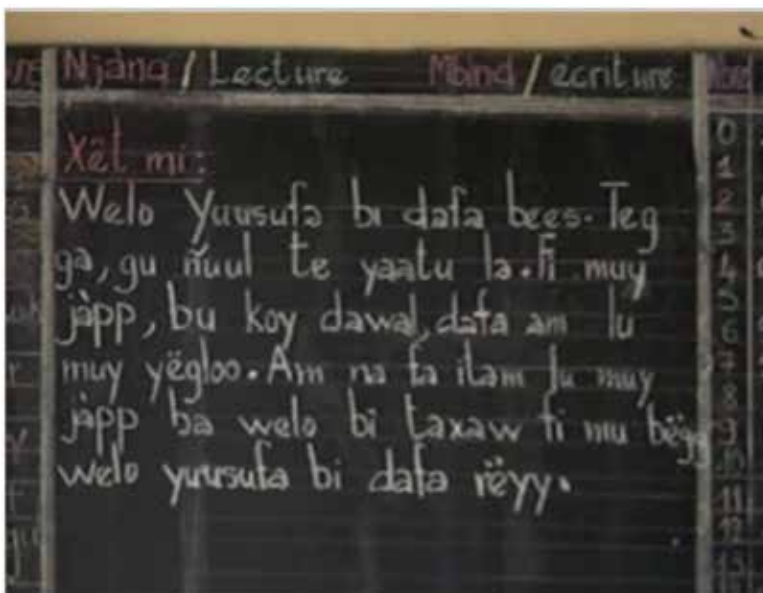 Njàng / Lecture Mbind / écriture
Xët mi:
Welo Yuusufa bi dafa bees. Teg
ga, gu ñuul te yaatu la. Fi muy
jàpp, bu koy dawal, dafa am lu
muy yëgloo. Am na fa itam lu muy
jàpp ba welo bi taxaw fi mu bëgg
welo yuusufa bi dafa rëyy.
0
1
2
3
4
5
6
7
8
9
10
11
12
13